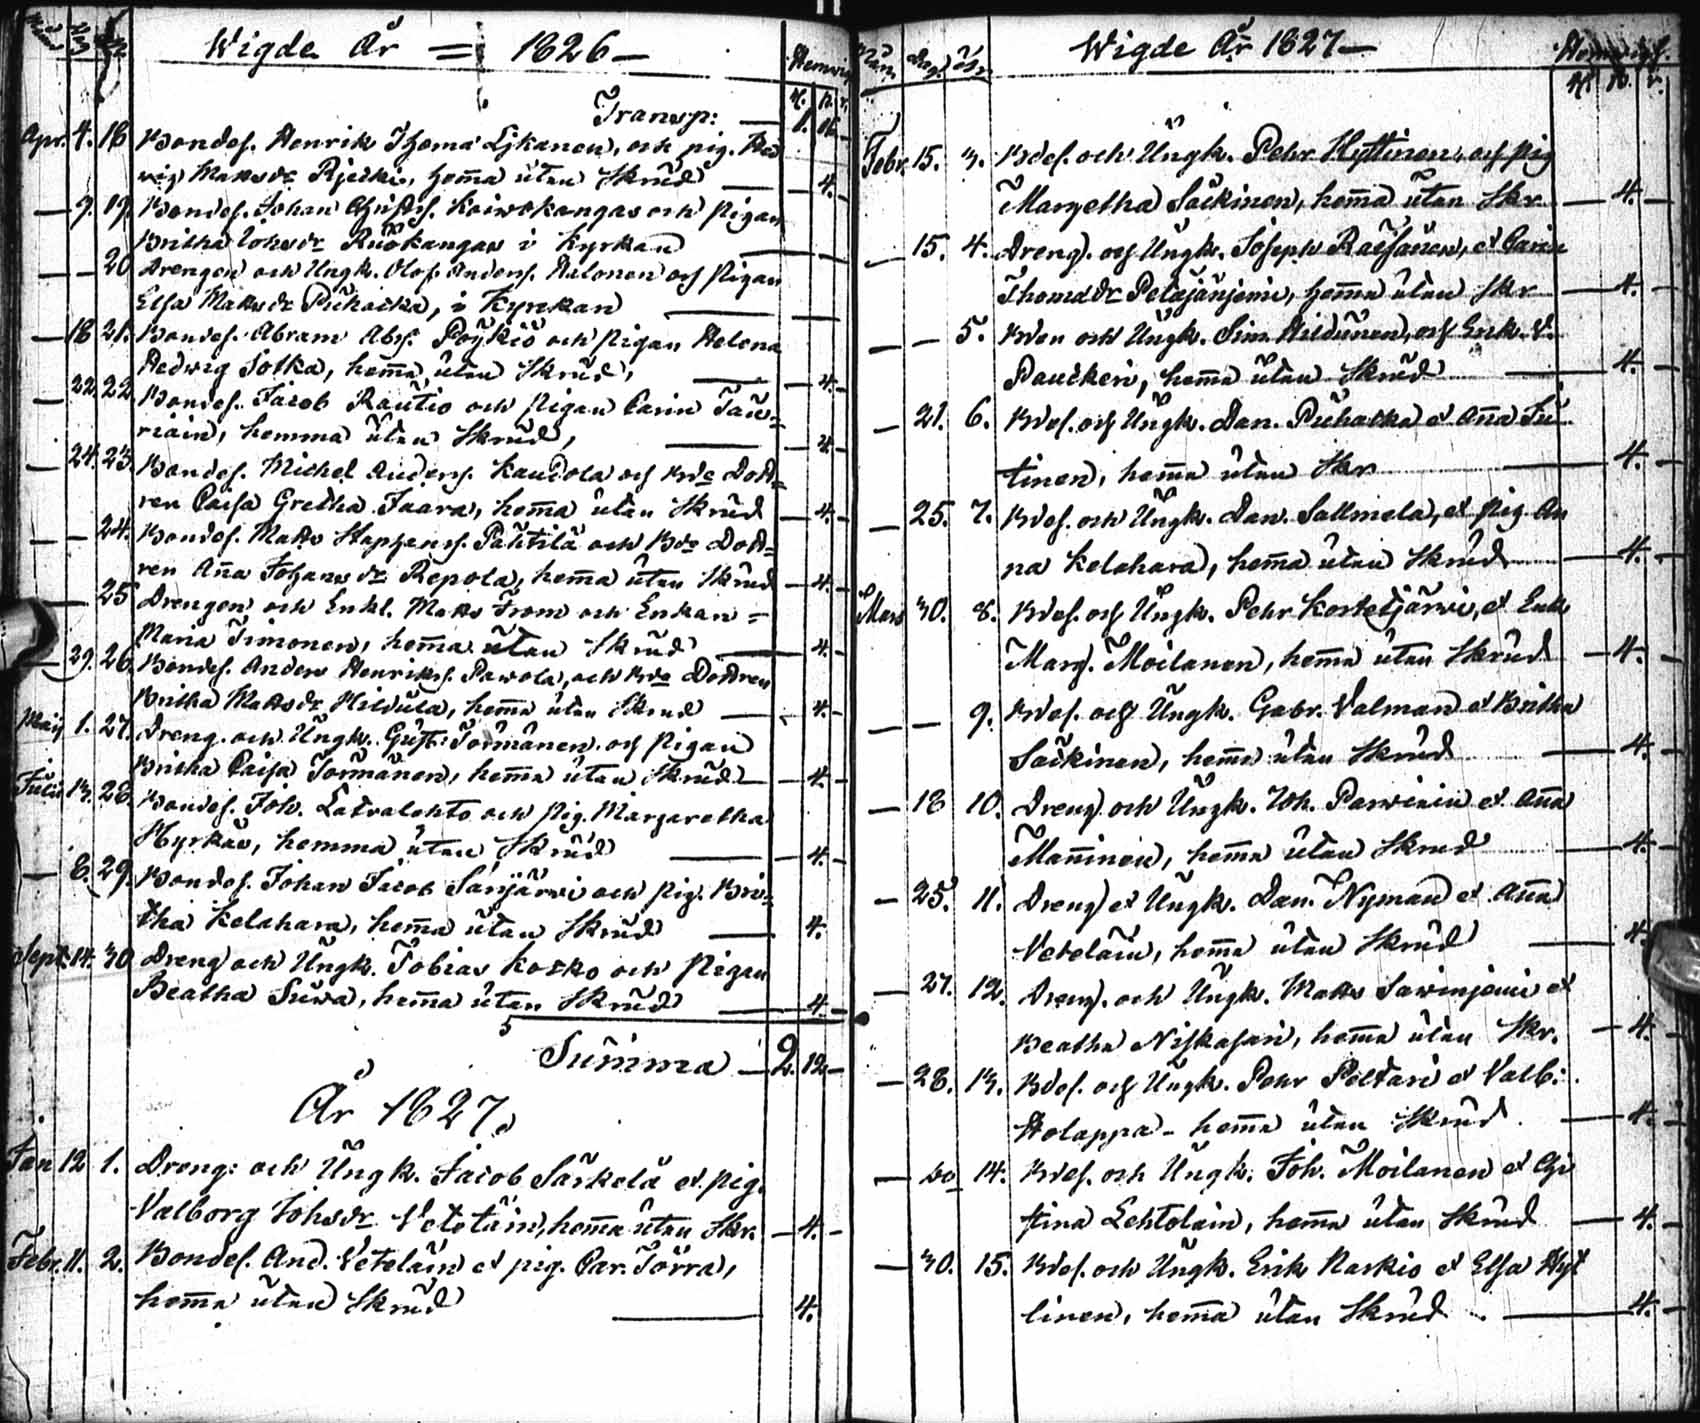 Wigde År = 1826 —
Transp: — 1. 16.
Apr. 4. 18 Bondes. Henrik Thoma Lykanen, och pig. Hed
wig Mattsdr Rjecki, hema utan Skrud — 4.
— 9. 19. Bondes. Johan Koiwokangas och pigan
Britha Johsdr Ruokangas i Kyrkan —
— — 20 Drengen och Ungk. Olof Anders. Aulonen och pigan
Elsa Mattsdr Pichacka, i Kyrkan —
— 18 21. Bondes. Abram Abrs. Pöykiö och pigan Helena
Hedwig Sotka, hema utan Skrud, — 4.
— 22. 22. Bondes. Jacob Rautio och pigan Carin Tau=
riain, hemma utan Skrud, — 4.
— 24. 23. Bondes. Michel Anders. Kaudola och Bde Dott=
ren Caisa Gretha Saara, hema utan Skrud — 4.
— — 24. Bondes. Matts Staphans. Pautilä och Bde Dott=
ren Aña Johansdr Repola, hema utan Skrud — 4.
— — 25 Drengen och Enkl. Matts From och Enkan =
Maria Timonen, hema utan Skrud — 4.
— 29. 26. Bondes. Anders Henriks. Pawola, och Bde Dottren
Britha Mattsdr Hildula, hema utan Skrud — 4.
Maij 1. 27. Dreng. och Ungk. Gust. Törmänen och pigan
Britha Caisa Törmänen, hema utan Skrud — 4.
Julii 13. 28. Bondes. Joh. Latvalehto och pig. Margaretha
Hyrkäs, hemma utan Skrud — 4.
— 8. 29. Bondes. Johan Jacob Särijärwi och pig. Bri=
tha Kelahara, hema utan Skrud — 4.
Sept. 14. 30 Dreng och Ungk. Tobias Kosko och pigan
Beatha Suwa, hema utan Skrud — 4.
Summa — 2. 12 —
År 1827.
Jan 12 1. Dreng: och Ungk. Jacob Särkelä et pig.
Valborg Johsdr Vetetäin, hema utan Skr. — 4. —
Febr. 11. 2. Bondes. And. Veteläin et pig. Car. Törra,
hema utan Skrud — 4.
Wigde År 1827 —
Febr. 15. 3. Bdes. och Ungk. Pehr Hyttinen, och pig
Margetha Säckinen, hema utan Skr — 4. —
— 15. 4. Dreng. och Ungk. Joseph Raesänen, et Carin
Thomadr Petäjäniemi, hema utan Skr — 4. —
— — 5. Bden och Ungk. Sim. Hildunen, och Enk. V.
Pauckeri, hema utan Skrud — 4. —
— 21. 6. Bdes. och Ungk. Dan. Puhacka et Aña Su
tinen, hema utan Skr — 4. —
— 25. 7. Bdes. och Ungk. Dan. Sallmela, et pig. An
na Kelahara, hema utan Skrud — 4. —
Mars 30. 8. Bdes. och Ungk. Pehr Kortetjärwi, et Enk
Marg. Moilanen, hema utan Skrud — 4. —
— — 9. Bdes. och Ungk. Gabr. Valman et Britha
Säckinen, hema utan Skrud — 4. —
— 18 10. Dreng och Ungk. Joh. Parwiain et Aña
Mañinen, hema utan Skrud — 4. —
— 25. 11. Dreng et Ungk. Dan. Nyman et Aña
Veteläin, hema utan Skrud — 4.
— 27. 12. Dreng. och Ungk. Matts Sawinjemi et
Beatha Niskasari, hema utan Skr. — 4. —
— 28. 13. Bdes. och Ungk. Pehr Peltari et Valb:
Holappa - hema utan Skrud — 4. —
— do 14. Bdes. och Ungk. Joh. Moilanen et Chri
stina Lehtolain, hema utan Skrud — 4. —
— 30. 15. Bdes. och Ungk. Erik Karkio et Elsa Hyt
tinen, hema utan Skrud — 4. —